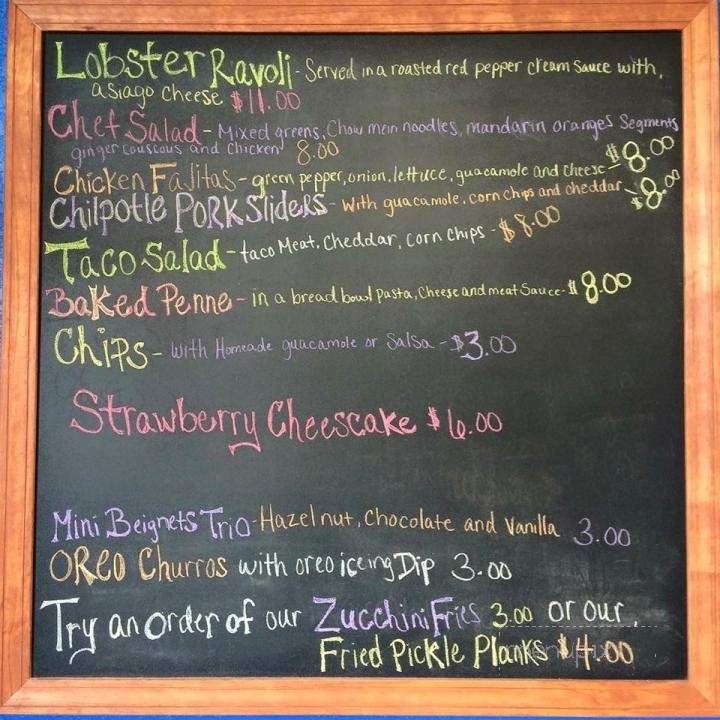 Lobster Ravoli - Served in a roasted red pepper cream sauce with,
asiago cheese $11.00
Chef Salad - Mixed greens, Chow mein noodles, mandarin oranges Segments
ginger couscous and chicken 8.00
Chicken Fajitas - green pepper, onion, lettuce, guacamole and cheese - $8.00
Chilpotle Pork Sliders - with guacamole, corn chips and cheddar - $8.00
Taco Salad - taco Meat, Cheddar, corn chips - $8.00
Baked Penne - in a bread bowl pasta, Cheese and meat Sauce - $8.00
Chips - with Homeade guacamole or Salsa - $3.00
Strawberry Cheescake $6.00
Mini Beignets Trio - Hazelnut, Chocolate and Vanilla 3.00
OREO Churros with oreo iceing Dip 3.00
Try an order of our Zucchini Fries 3.00 or our,
Fried Pickle Planks $4.00